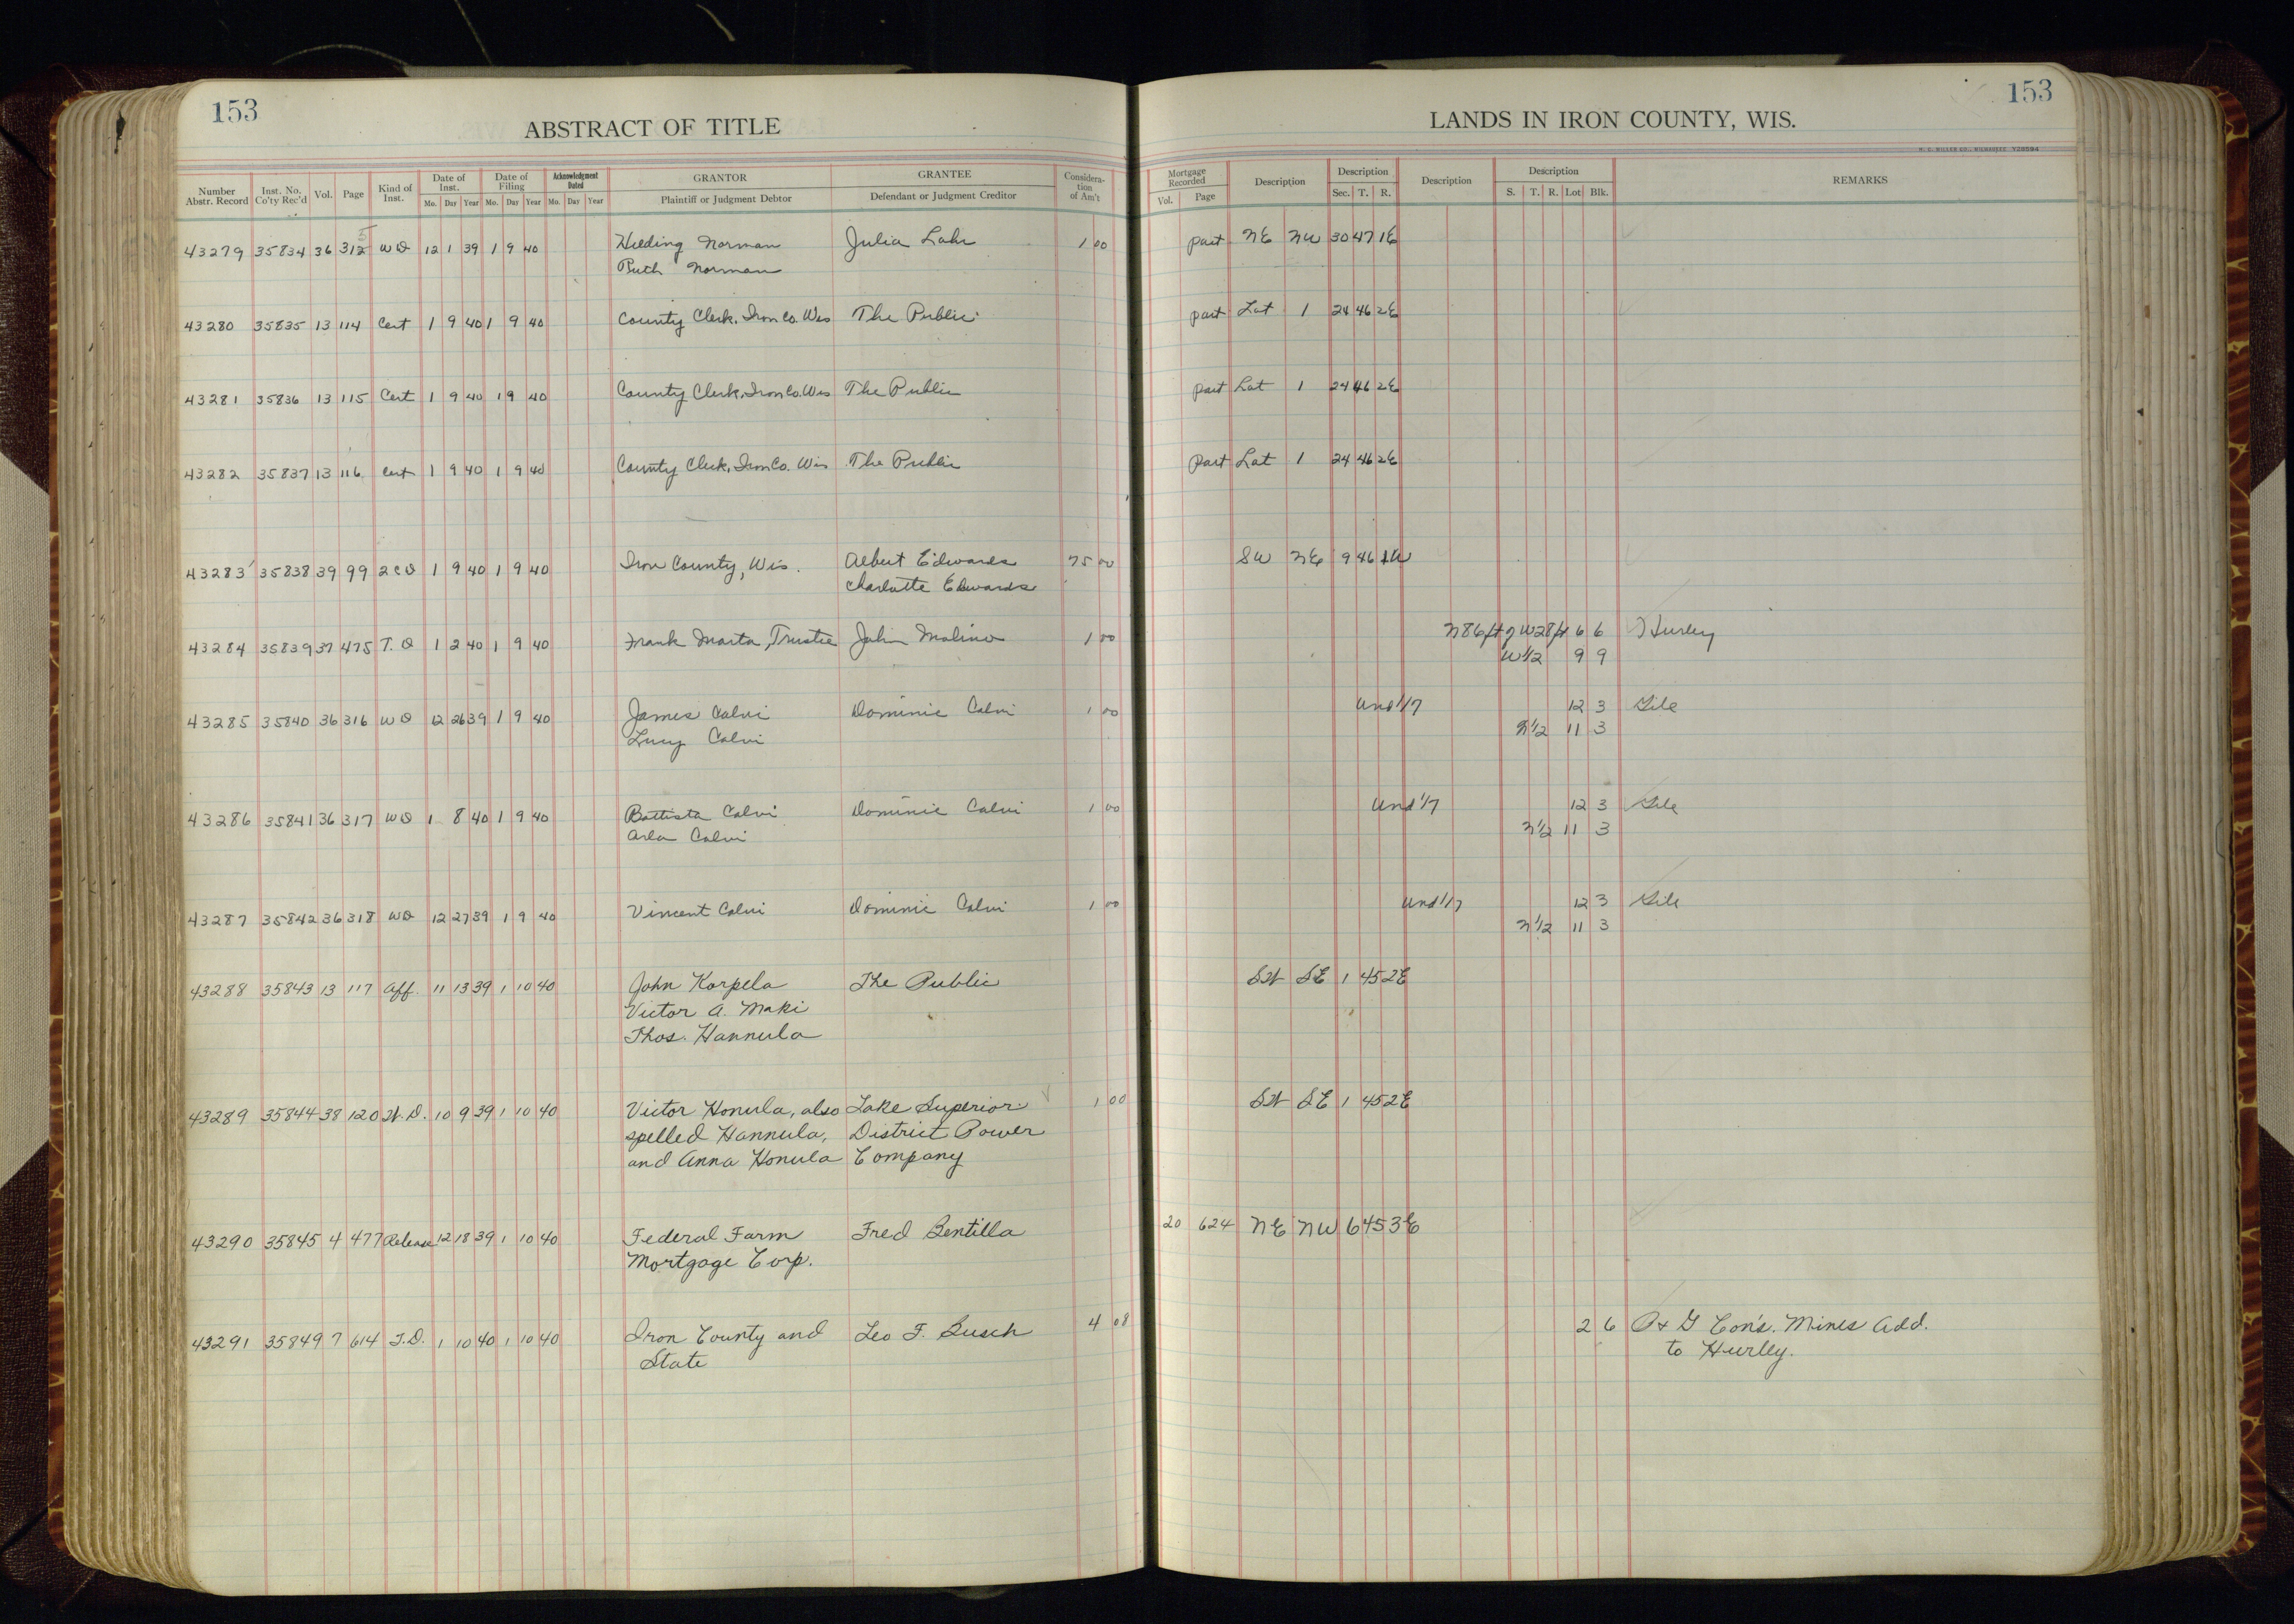 153
ABSTRACT OF TITLE
Number Abstr. Record | Inst. No. Co'ty Rec'd | Vol. | Page | Kind of Inst. | Date of Inst. Mo. Day Year | Date of Filing Mo. Day Year | Acknowledgment Dated Mo. Day Year | GRANTOR Plaintiff or Judgment Debtor | GRANTEE Defendant or Judgment Creditor | Considera- tion of Am't
43279 35834 36 312 5 WD 12 1 39 1 9 40 Hilding Norman Julia Lahr 1 00
Ruth Norman
43280 35835 13 114 Cert 1 9 40 1 9 40 County Clerk, Iron Co. Wis The Public
43281 35836 13 115 Cert 1 9 40 1 9 40 County Clerk, Iron Co. Wis The Public
43282 35837 13 116 Cert 1 9 40 1 9 40 County Clerk, Iron Co. Wis The Public
43283 35838 39 99 2CD 1 9 40 1 9 40 Iron County, Wis. Albert Edwards 75 00
Charlotte Edwards
43284 35839 37 475 T. D 1 2 40 1 9 40 Frank Marta, Trustee John Molino 1 00
43285 35840 36 316 WD 12 26 39 1 9 40 James Calvi Dominic Calvi 1 00
Lucy Calvi
43286 35841 36 317 WD 1 8 40 1 9 40 Battista Calvi Dominic Calvi 1 00
Arla Calvi
43287 35842 36 318 WD 12 27 39 1 9 40 Vincent Calvi Dominic Calvi 1 00
43288 35843 13 117 Aff. 11 13 39 1 10 40 John Korpela The Public
Victor A. Maki
Thos. Hannula
43289 35844 38 120 W.D. 10 9 39 1 10 40 Victor Honula, also Lake Superior 1 00
spelled Hannula, District Power
and Anna Honula Company
43290 35845 4 477 Release 12 18 39 1 10 40 Federal Farm Fred Bentilla
Mortgage Corp.
43291 35849 7 614 T.D. 1 10 40 1 10 40 Iron County and Leo F. Busch 4 08
State
153
LANDS IN IRON COUNTY, WIS.
Mortgage Recorded Vol. Page | Description | Description Sec. T. R. | Description | Description S. T. R. Lot Blk. | REMARKS
part NE NW 30 47 1E
part Lot 1 24 46 2E
part Lot 1 24 46 2E
part Lot 1 24 46 2E
SW NE 9 46 1W
N86ft of W28ft 6 6 Hurley
W 1/2 9 9
Und 1/7 12 3 Gile
N 1/2 11 3
Und 1/7 12 3 Gile
N 1/2 11 3
Und 1/7 12 3 Gile
N 1/2 11 3
SW SE 1 45 2E
SW SE 1 45 2E
20 624 NE NW 6 45 3E
2 6 P & G Con's. Mines Add.
to Hurley.